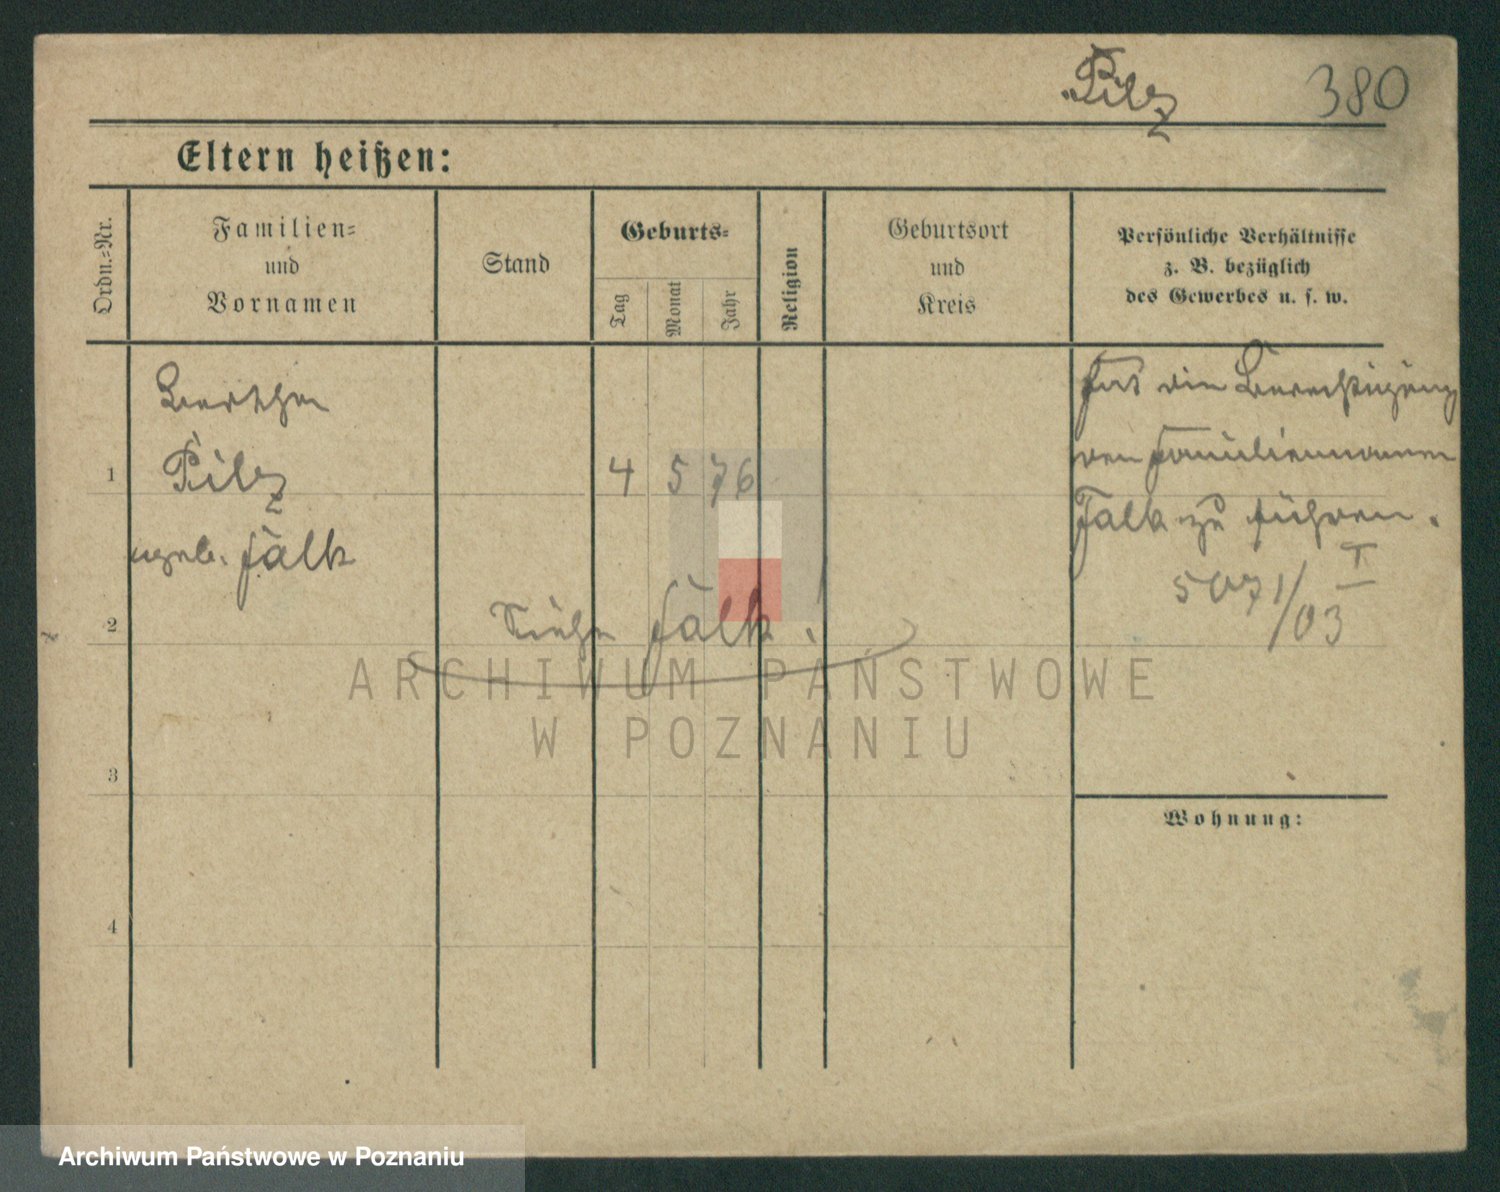 Pilz
380
Eltern heißen:
Ordn.=Nr.
Familien=
und
Vornamen
Stand
Geburts=
Tag
Monat
Jahr
Religion
Geburtsort
und
Kreis
Persönliche Verhältnisse
z. B. bezüglich
des Gewerbes u. s. w.
Bertha
1 Pilz 4 5 76
geb. Falk
hat die Berechtigung
den Familiennamen
Falk zu führen.
5071/03 I
2
Siehe Falk.
3
4
Wohnung:
ARCHIWUM PAŃSTWOWE
W POZNANIU
Archiwum Państwowe w Poznaniu